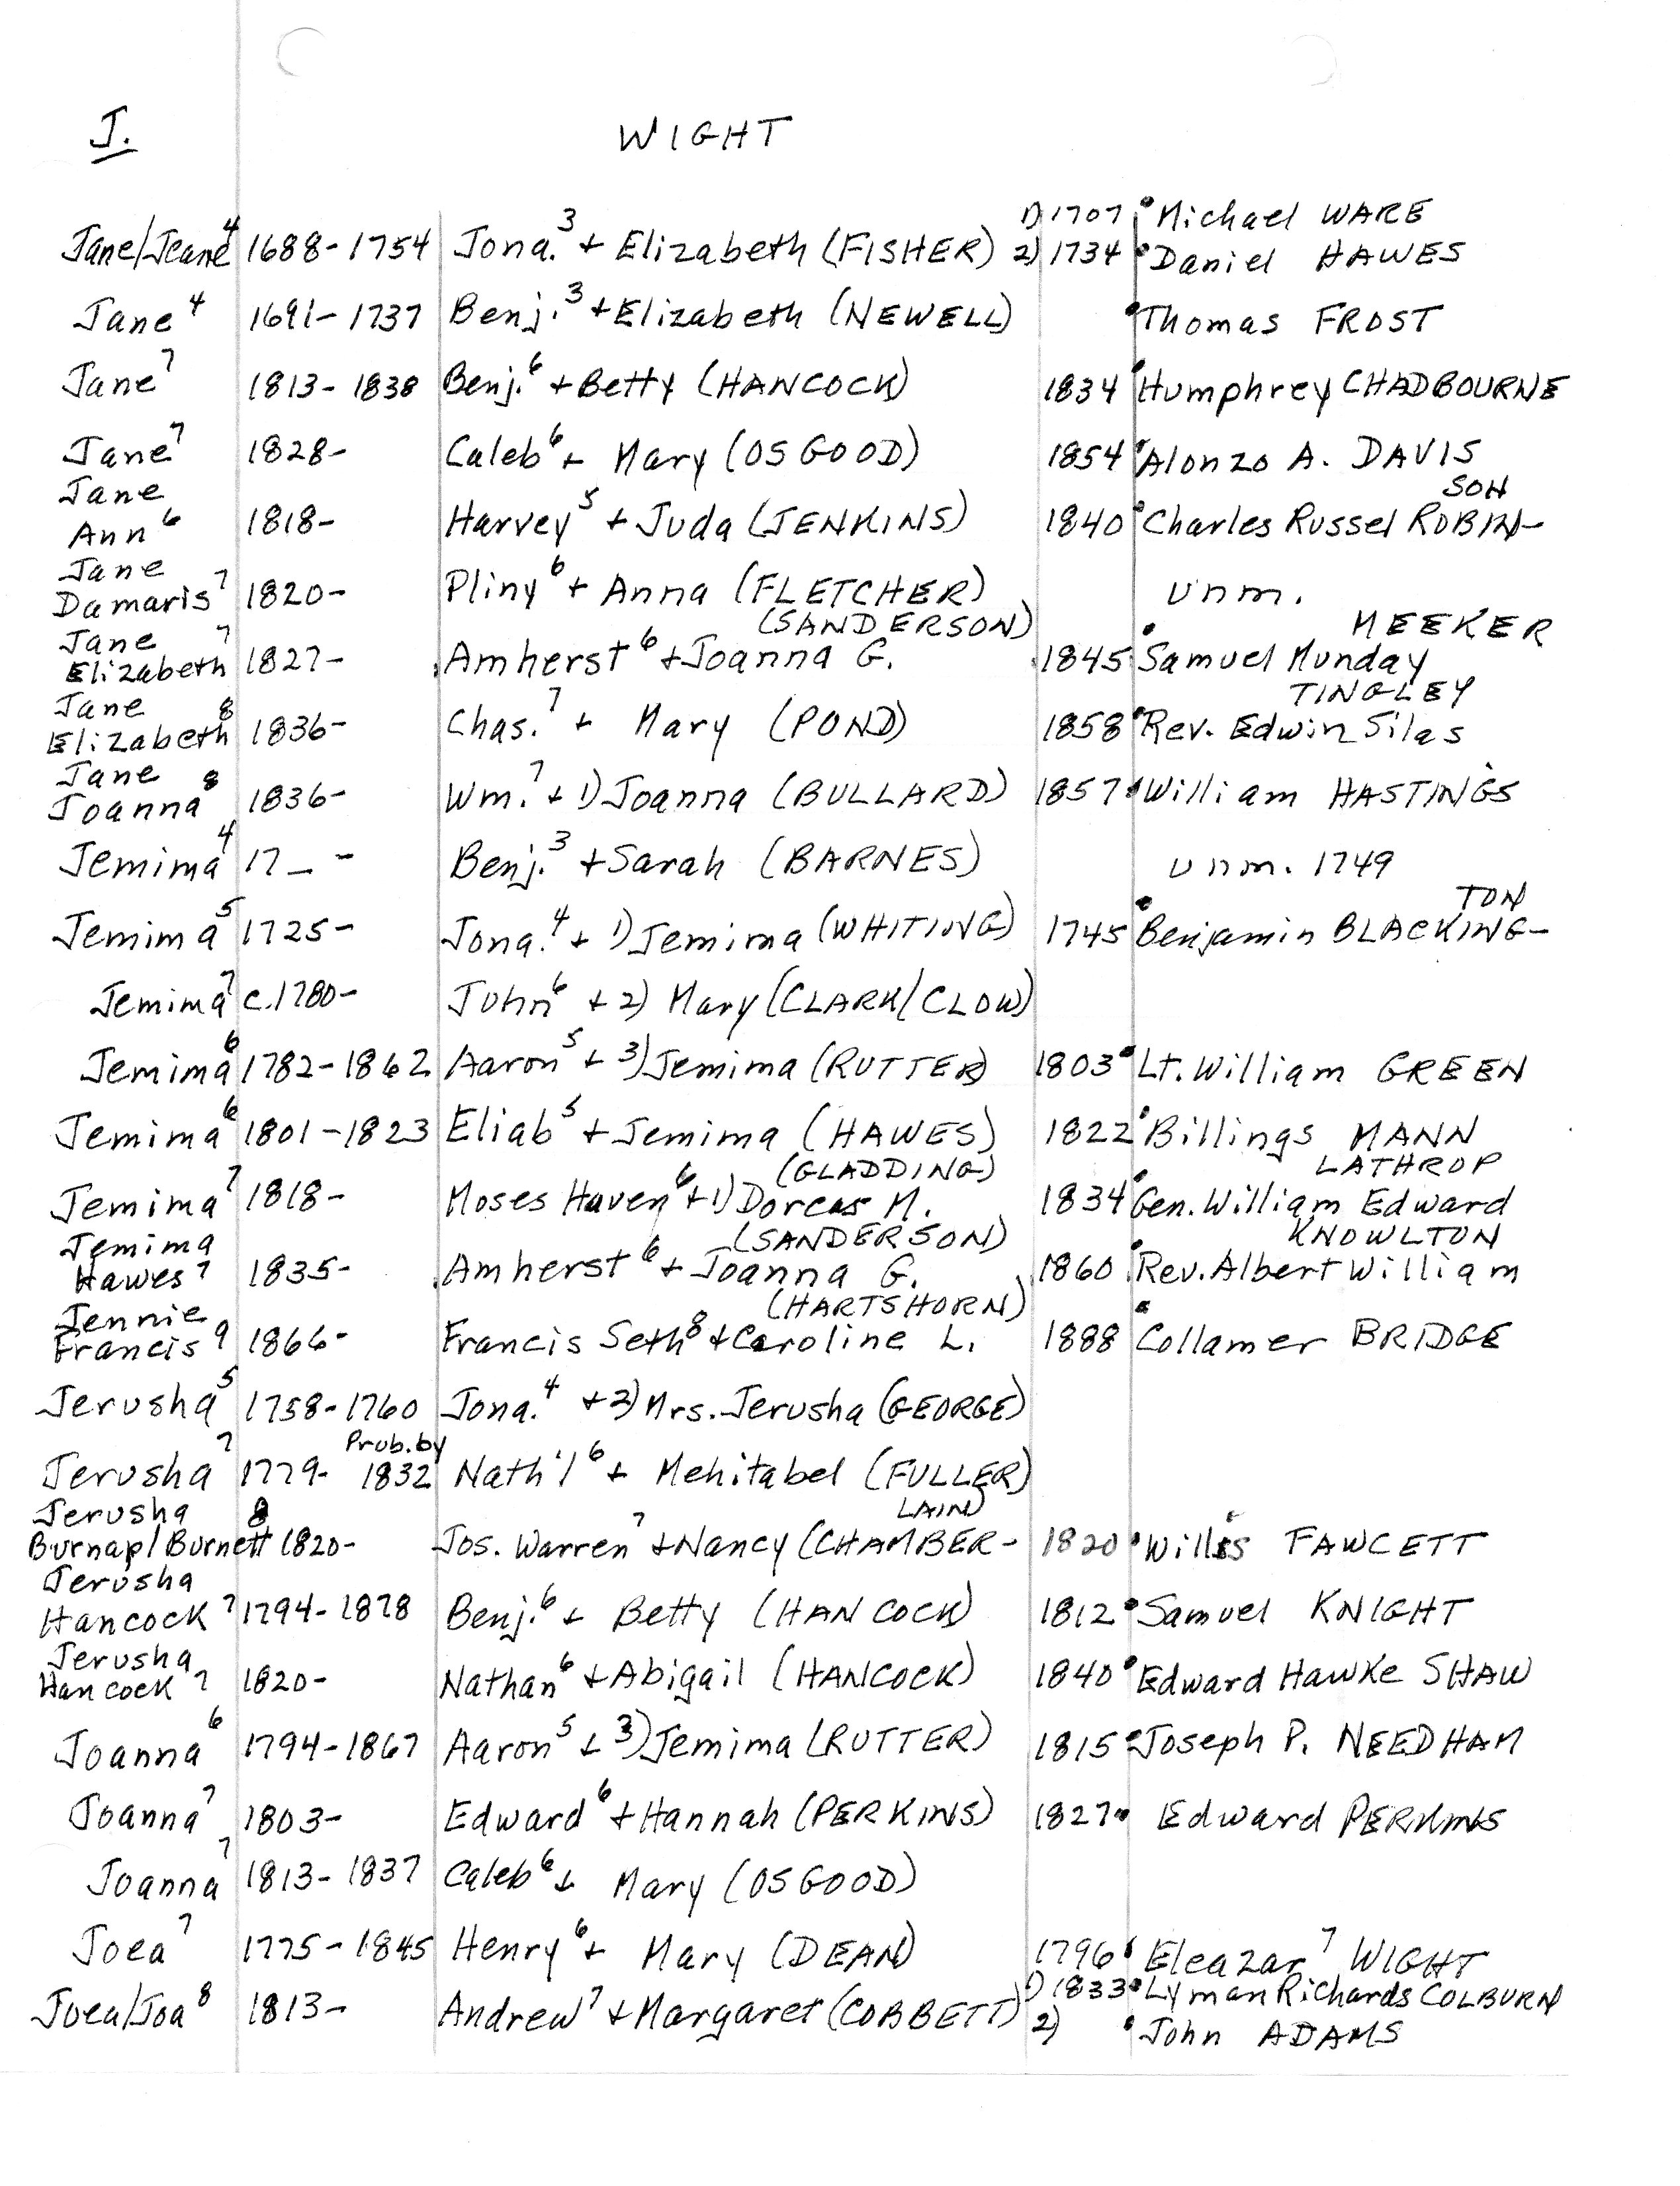 J. WIGHT
1) 1707 Michael WARE
Jane/Jeane⁴ 1688-1754 Jona.³ + Elizabeth (FISHER) 2) 1734 Daniel HAWES
Jane⁴ 1691-1737 Benj.³ + Elizabeth (NEWELL) Thomas FROST
Jane⁷ 1813-1838 Benj.⁶ + Betty (HANCOCK) 1834 Humphrey CHADBOURNE
Jane⁷ 1828- Caleb⁶ + Mary (OSGOOD) 1854 Alonzo A. DAVIS
Jane SON
Ann⁶ 1818- Harvey⁵ + Juda (JENKINS) 1840 Charles Russel ROBIN-
Jane
Damaris⁷ 1820- Pliny⁶ + Anna (FLETCHER) unm.
Jane (SANDERSON) MEEKER
Elizabeth⁷ 1827- Amherst⁶ + Joanna G. 1845 Samuel Munday
Jane TINGLEY
Elizabeth⁸ 1836- Chas.⁷ + Mary (POND) 1858 Rev. Edwin Silas
Jane
Joanna⁸ 1836- Wm.⁷ + 1) Joanna (BULLARD) 1857 William HASTINGS
Jemima⁴ 17_ - Benj.³ + Sarah (BARNES) unm. 1749
TON
Jemima⁵ 1725- Jona.⁴ + 1) Jemima (WHITING) 1745 Benjamin BLACKING-
Jemima⁷ c.1780- John⁶ + 2) Mary (CLARK/CLOW)
Jemima⁶ 1782-1862 Aaron⁵ + 3) Jemima (RUTTER) 1803 Lt. William GREEN
Jemima⁶ 1801-1823 Eliab⁵ + Jemima (HAWES) 1822 Billings MANN
(GLADDING) LATHROP
Jemima⁷ 1818- Moses Haven⁶ + 1) Dorcas M. 1834 Gen. William Edward
Jemima (SANDERSON) KNOWLTON
Hawes⁷ 1835- Amherst⁶ + Joanna G. 1860 Rev. Albert William
Jennie (HARTSHORN)
Francis⁹ 1866- Francis Seth⁸ + Caroline L. 1888 Collamer BRIDGE
Jerusha⁵ 1758-1760 Jona.⁴ + 2) Mrs. Jerusha (GEORGE)
Prob. by
Jerusha⁷ 1779- 1832 Nath'l⁶ + Mehitabel (FULLER)
Jerusha LAIN)
Burnap/Burnett⁸ 1820- Jos. Warren⁷ + Nancy (CHAMBER- 1820 Willis FAWCETT
Jerusha
Hancock⁷ 1794-1878 Benj.⁶ + Betty (HANCOCK) 1812 Samuel KNIGHT
Jerusha
Hancock⁷ 1820- Nathan⁶ + Abigail (HANCOCK) 1840 Edward Hawke SHAW
Joanna⁶ 1794-1867 Aaron⁵ + 3) Jemima (RUTTER) 1815 Joseph P. NEEDHAM
Joanna⁷ 1803- Edward⁶ + Hannah (PERKINS) 1827 Edward PERKINS
Joanna⁷ 1813-1837 Caleb⁶ + Mary (OSGOOD)
Joea⁷ 1775-1845 Henry⁶ + Mary (DEAN) 1796 Eleazar⁷ WIGHT
1) 1833 Lyman Richards COLBURN
Joea/Joa⁸ 1813- Andrew⁷ + Margaret (COBBETT) 2) John ADAMS